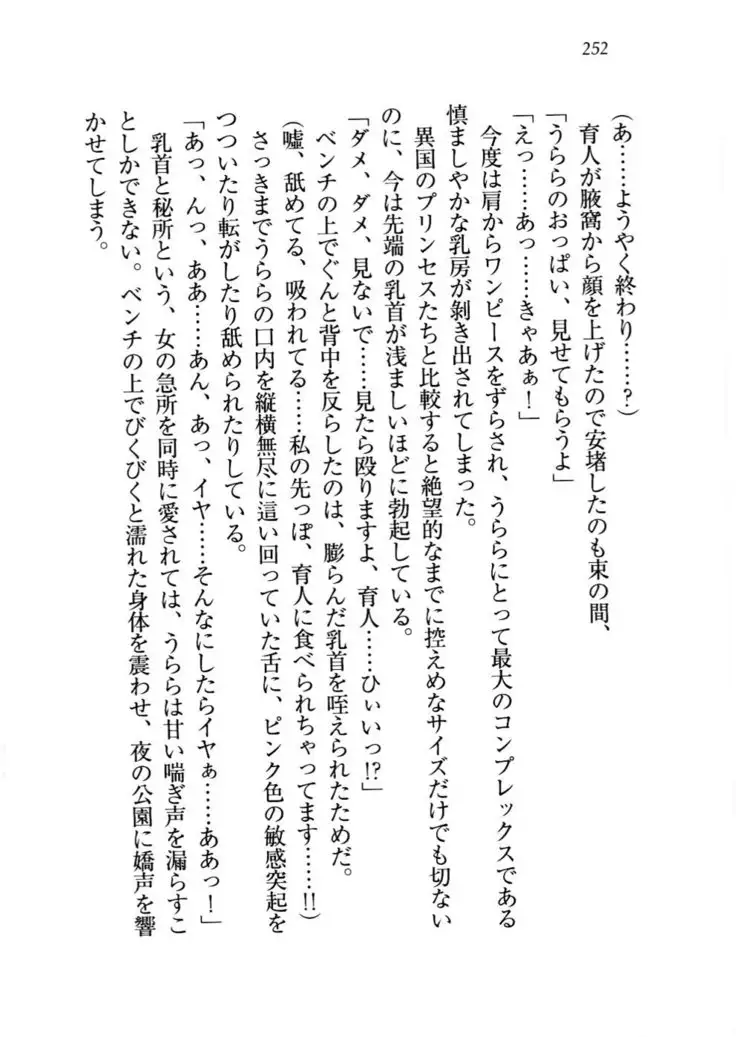 252
(あ……ようやく終わり……?)
育人が腋窩から顔を上げたので安堵したのも束の間、
「うららのおっぱい、見せてもらうよ」
「えっ……あっ……きゃあぁ!」
今度は肩からワンピースをずらされ、うららにとって最大のコンプレックスである
慎ましやかな乳房が剥き出されてしまった。
異国のプリンセスたちと比較すると絶望的なまでに控えめなサイズだけでも切ない
のに、今は先端の乳首が浅ましいほどに勃起している。
「ダメ、ダメ、見ないで……見たら殴りますよ、育人……ひぃいっ!?」
ベンチの上でぐんと背中を反らしたのは、膨らんだ乳首を咥えられたためだ。
(嘘、舐めてる、吸われてる……私の先っぽ、育人に食べられちゃってます……!!)
さっきまでうららの口内を縦横無尽に這い回っていた舌に、ピンク色の敏感突起を
つついたり転がしたり舐められたりしている。
「あっ、んっ、ああ……あん、あっ、イヤ……そんなにしたらイヤぁ……ああっ!」
乳首と秘所という、女の急所を同時に愛されては、うららは甘い喘ぎ声を漏らすこ
としかできない。ベンチの上でびくびくと濡れた身体を震わせ、夜の公園に嬌声を響
かせてしまう。